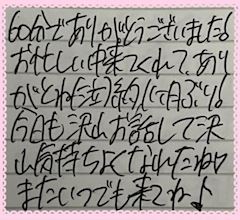 60分でありがとうございました!
お忙しい中来てくれて、あり
がとね 約1ヶ月ぶり!
今日も沢山お話して沢
山気持ちよくなれたね♡
またいつでも来てね♪